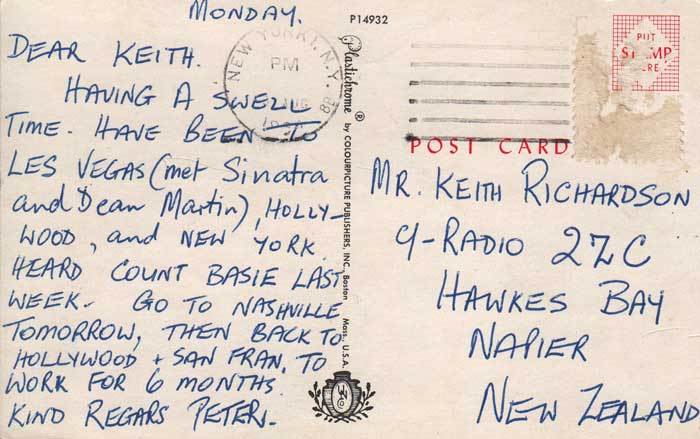 MONDAY.
DEAR KEITH.
HAVING A SWELL
TIME. HAVE BEEN TO
LES VEGAS (met Sinatra
and Dean Martin), HOLLY-
WOOD, and NEW YORK.
HEARD COUNT BASIE LAST
WEEK. GO TO NASHVILLE
TOMORROW, THEN BACK TO
HOLLYWOOD + SAN FRAN. TO
WORK FOR 6 MONTHS.
KIND REGARS PETER.
P14932
Plastichrome ® by COLOURPICTURE PUBLISHERS, INC., Boston Mass., U.S.A.
NEW YORK 1, N.Y.
PM
PUT
STAMP
POST CARD
MR. KEITH RICHARDSON
9-RADIO 2ZC
HAWKES BAY
NAPIER
NEW ZEALAND